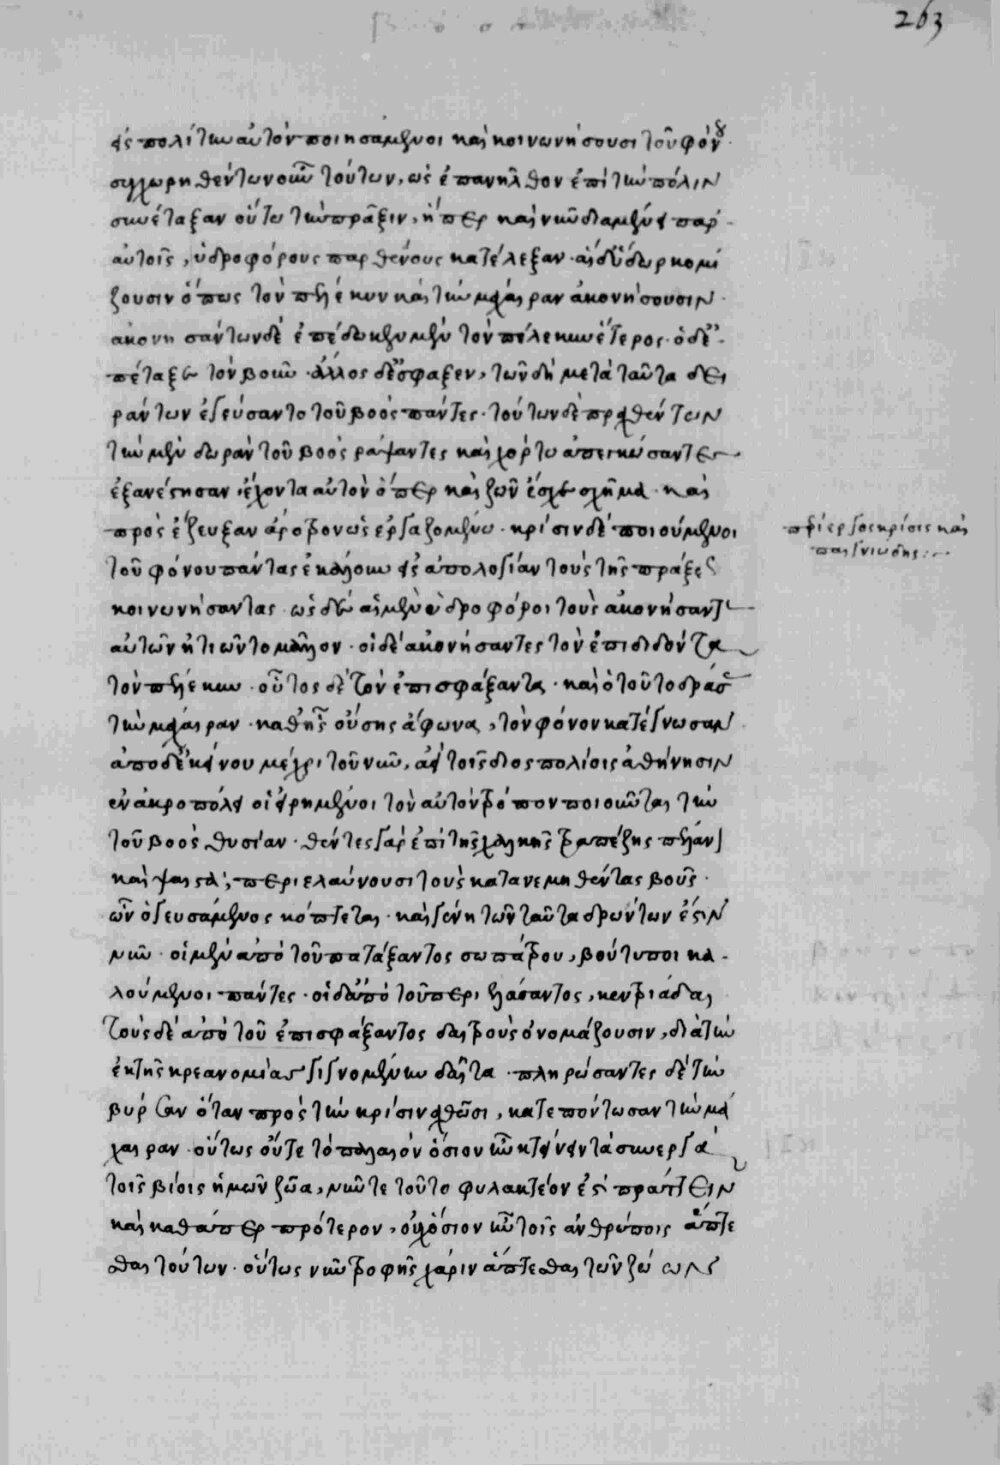 263
εἰς πολίτην αὐτὸν ποιησάμενοι καὶ κοινωνήσουσι τοῦ φόνου·
συγχωρηθέντων οὖν τούτων, ὡς ἐπανῆλθον ἐπὶ τὴν πόλιν
συνέταξαν οὕτω τὴν πρᾶξιν, ἥπερ καὶ νῦν διαμένει παρ'
αὐτοῖς, ὑδροφόρους παρθένους κατέλεξαν· αἱ δ' ὕδωρ κομί
ζουσιν ὅπως τὸν πέλεκυν καὶ τὴν μάχαιραν ἀκονήσουσιν·
ἀκονησάντων δὲ ἐπέδωκεν μὲν τὸν πέλεκυν ἕτερος· ὁ δ' ἐ
πέταξε τὸν βοῦν· ἄλλος δ' ἔσφαξεν, τῶν δὴ μετὰ ταῦτα δει
ράντων ἐγεύσαντο τοῦ βοὸς πάντες· τούτων δὲ πραχθέντων
τὴν μὲν δορὰν τοῦ βοὸς ῥάψαντες καὶ χόρτῳ ἀπεικώσαντες
ἐξανέστησαν ἔχοντα αὐτὸν ὅπερ καὶ ζῶν ἔσχε σχῆμα· καὶ
προσέζευξαν ἄροτρον ὡς ἐργαζομένῳ· κρίσιν δὲ ποιούμενοι
τοῦ φόνου πάντας ἐκάλουν εἰς ἀπολογίαν τοὺς τῆς πράξεως
κοινωνήσαντας· ὡς δὲ αἱ μὲν ὑδροφόροι τοὺς ἀκονήσαντας
αὐτῶν ᾐτιῶντο μᾶλλον· οἱ δὲ ἀκονήσαντες τὸν ἐπιδιδόντα
τὸν πέλεκυν· οὗτος δὲ τὸν ἐπισφάξαντα· καὶ ὁ τοῦτο δράσας
τὴν μάχαιραν· καθ' ἧς οὔσης ἀφώνα, τὸν φόνον κατέγνωσαν
ἀπὸ δ' ἐκείνου μέχρι τοῦ νῦν, ἀεὶ τοῖς διοσπολίοις ἀθήνησιν
ἐν ἀκροπόλει οἱ εἰρημένοι τὸν αὐτὸν τρόπον ποιοῦνται τὴν
τοῦ βοὸς θυσίαν· θέντες γὰρ ἐπὶ τῆς χαλκῆς τραπέζης πέλανον
καὶ ψαιστὰ, περιελαύνουσι τοὺς κατανεμηθέντας βοῦς·
ὧν ὁ γευσάμενος κόπτεται· καὶ γένη τῶν ταῦτα δρώντων ἐστὶν
νῦν· οἱ μὲν ἀπὸ τοῦ πατάξαντος σωπάτρου, βούτυποι κα
λούμενοι πάντες· οἱ δ' ἀπὸ τοῦ περιελάσαντος, κεντριάδαι
τοὺς δὲ ἀπὸ τοῦ ἐπισφάξαντος δαιτροὺς ὀνομάζουσιν, διὰ τὴν
ἐκ τῆς κρεανομίας γιγνομένην δαῖτα· πληρώσαντες δὲ τὴν
βύρσαν ὅταν πρὸς τὴν κρίσιν ἀχθῶσι, κατεπόντωσαν τὴν μά
χαιραν· οὕτως οὔτε τὸ παλαιὸν ὅσιον ἦν κτείνειν τὰ συνεργὰ
τοῖς βίοις ἡμῶν ζῶα, νῦν τε τοῦτο φυλακτέον ἐστὶ πράττειν
καὶ καθάπερ πρότερον, οὐχ ὅσιον ἦν τοῖς ἀνθρώποις ἅπτε
σθαι τούτων· οὕτως νῦν τροφῆς χάριν ἅπτεσθαι τῶν ζώων